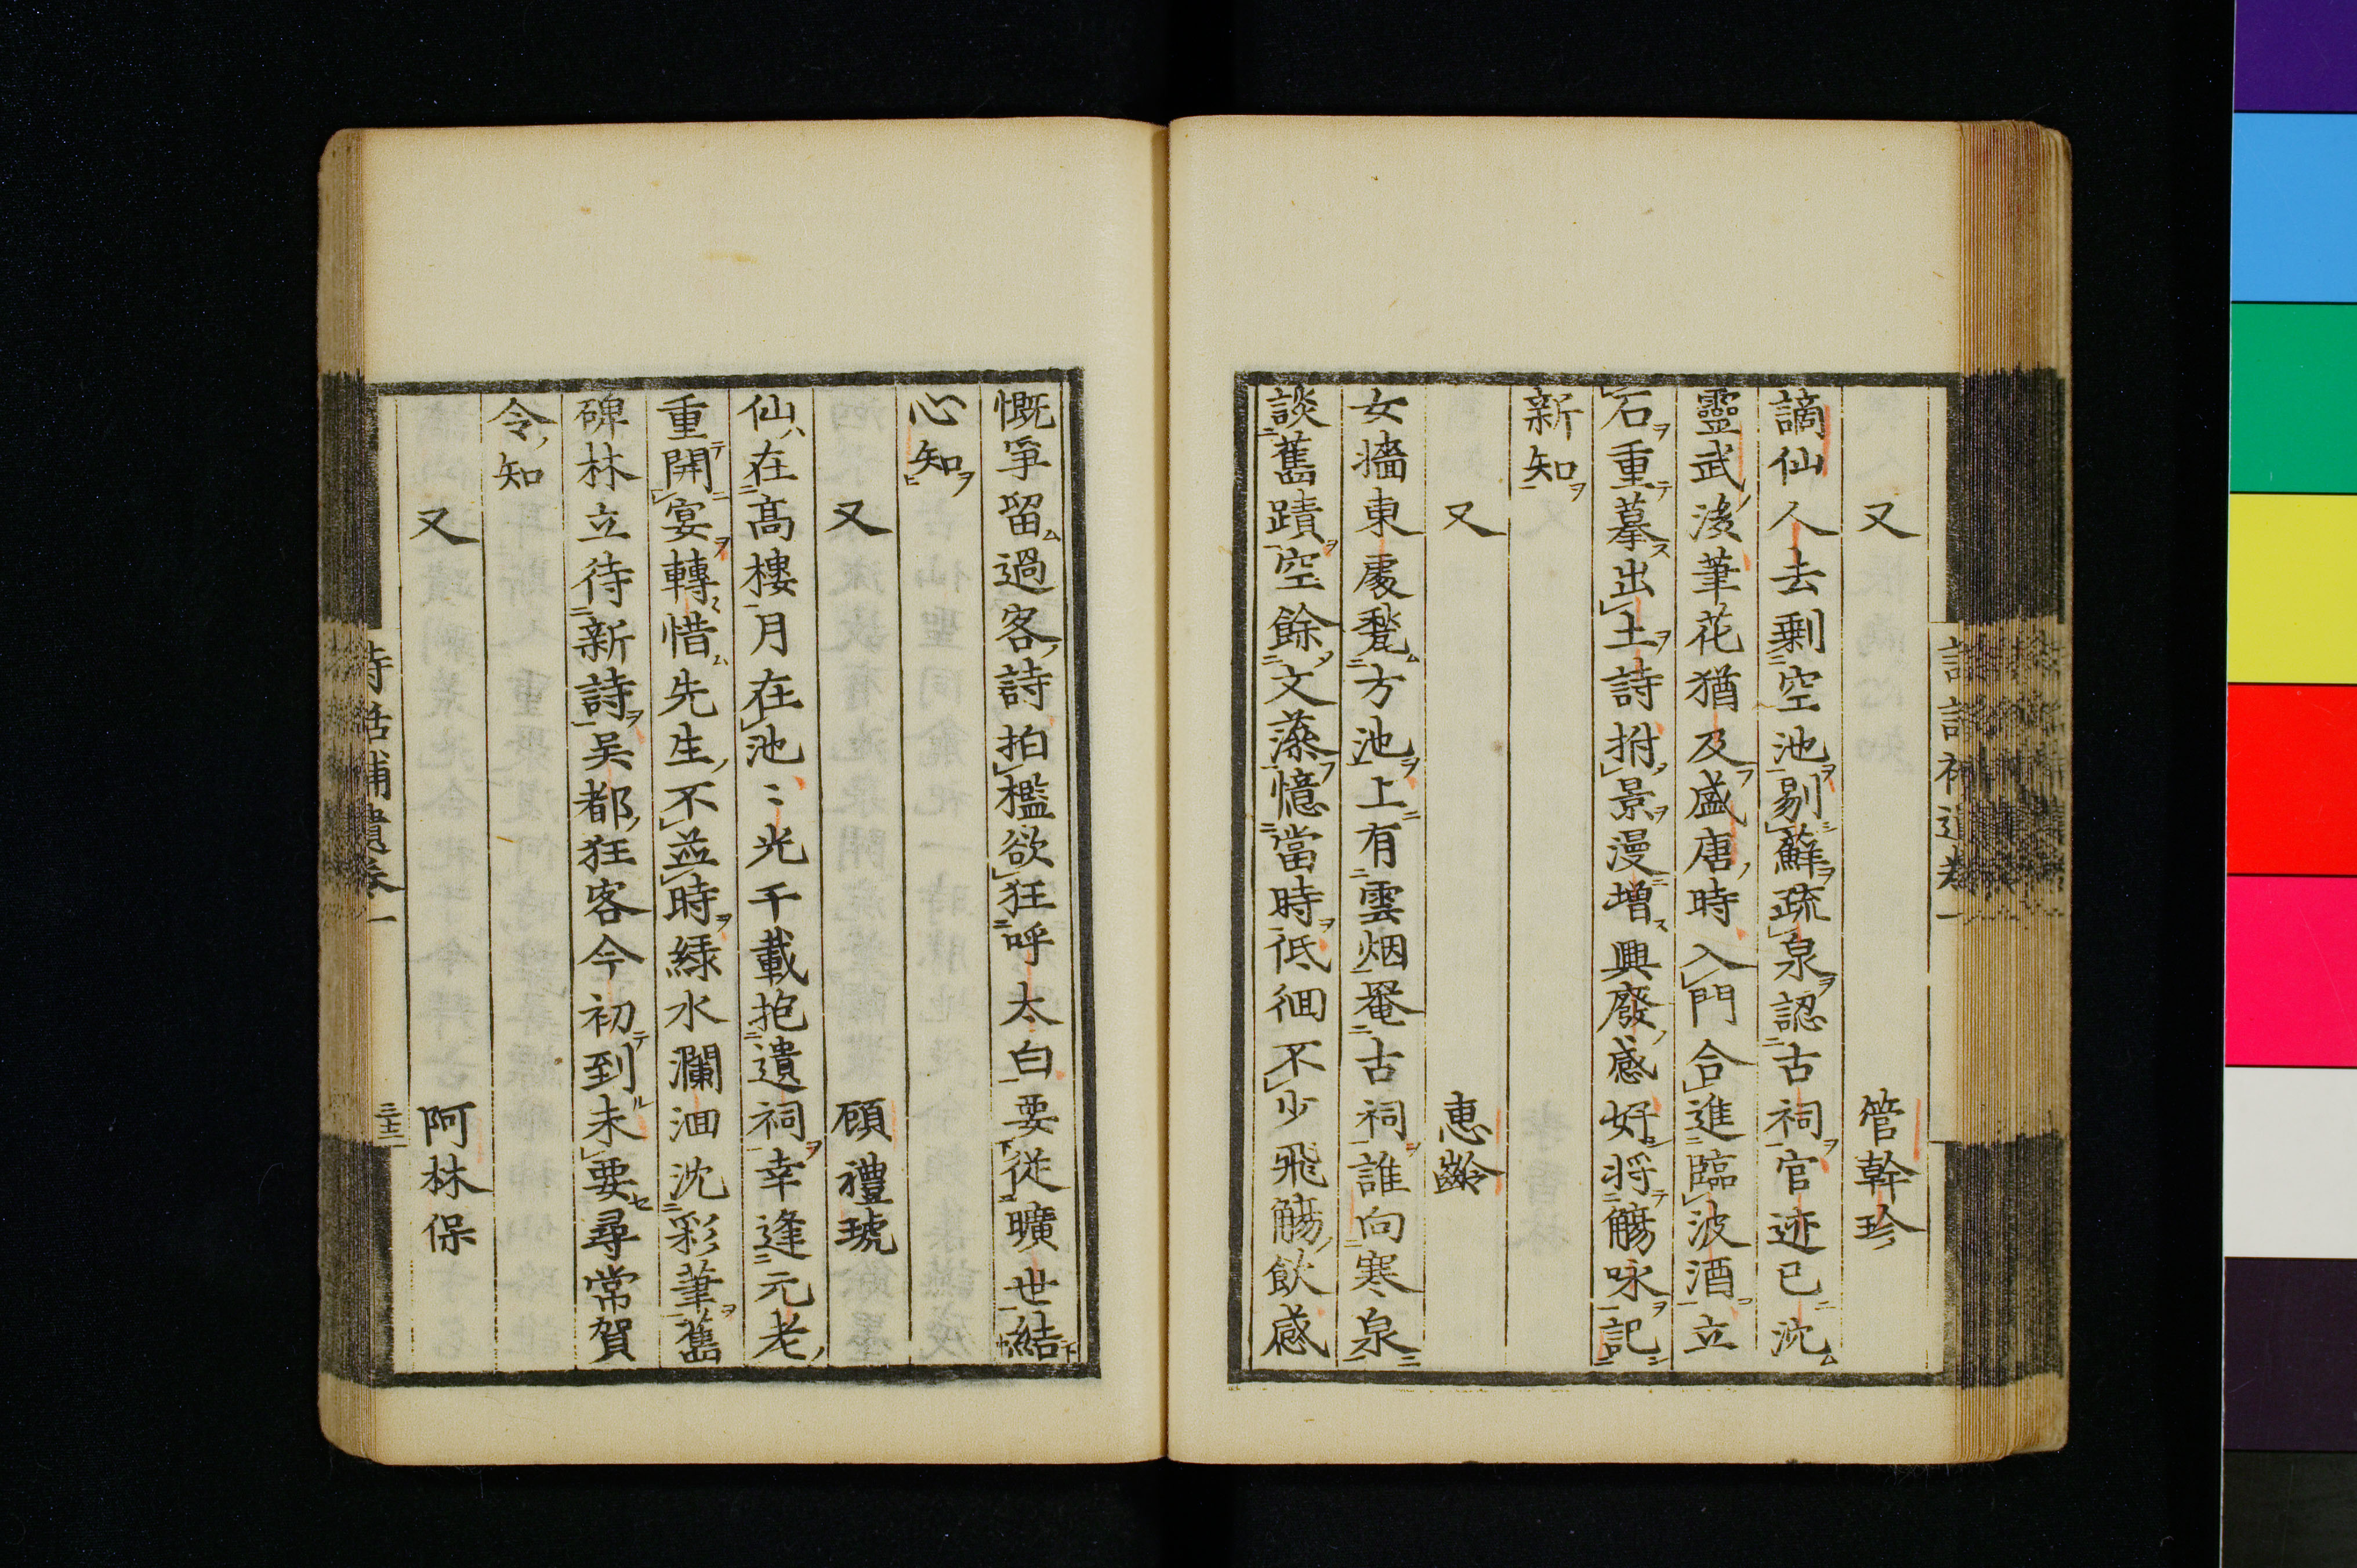 又　管幹珍
謫仙人去剩空池剔蘚疏泉認古祠官迹已沈
靈武後筆花猶及盛唐時入門合進臨波酒立
石重摹出土詩拊景漫增興廢感好將觴咏記
新知
又　惠齡
女牆東處甃方池上有雲烟罨古祠誰向寒泉
談舊蹟空餘文藻憶當時低徊不少飛觴飲感
慨爭留過客詩拍檻欲狂呼太白要從曠世結
心知
又　顧禮琥
仙在高樓月在池〻光千載抱遺祠幸逢元老
重開宴轉惜先生不並時綠水瀾洄沈彩筆舊
碑林立待新詩吳都狂客今初到未要尋常賀
令知
又　阿林保
詩話補遺卷一
三十二